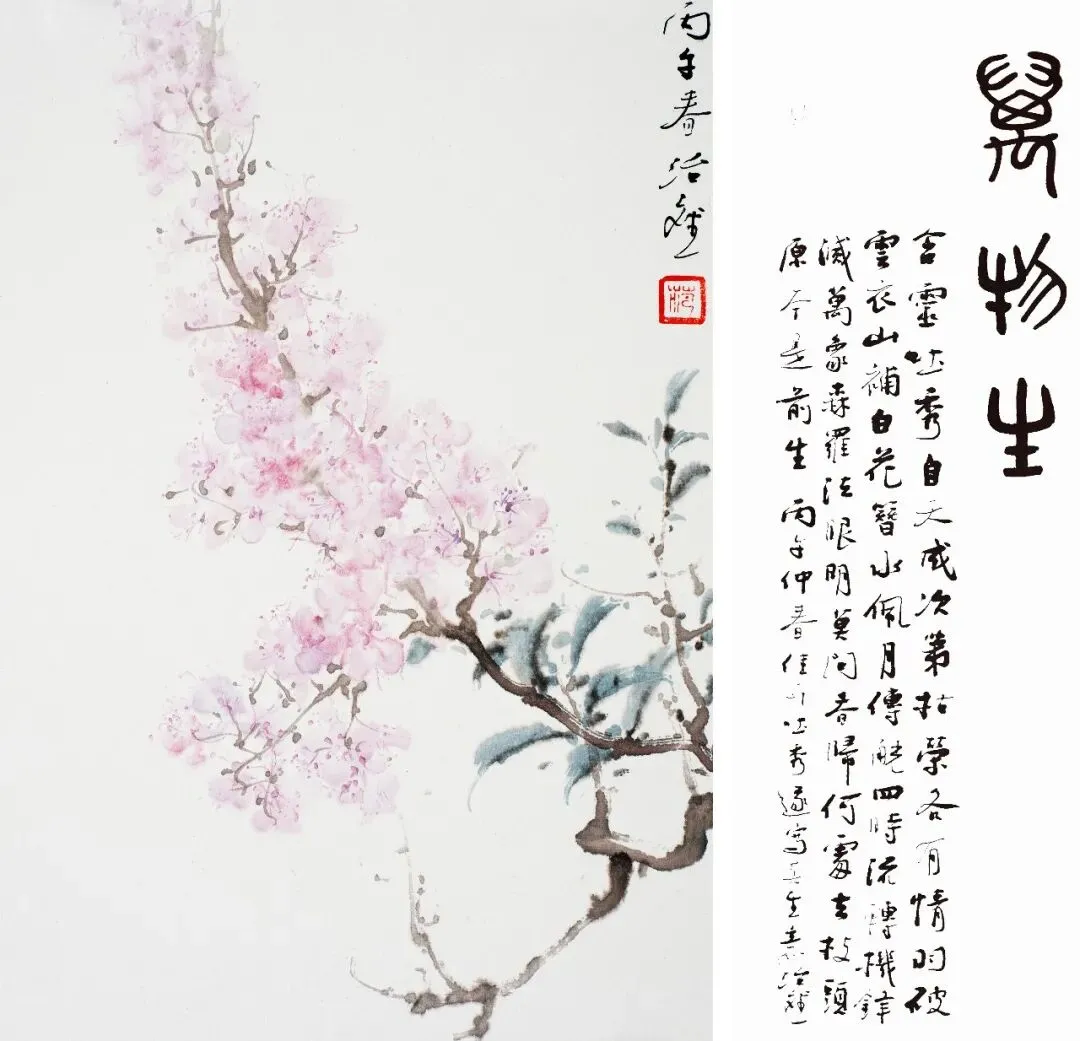 萬物生
含靈吐秀自天成次第枯榮各有情羽破
雲衣山補白花簪水佩月傳觥四時流轉機鋒
滅萬象森羅法眼明莫問春歸何處去枝頭
原本是前生 丙午仲春佳卉吐秀遂寫其生意治
丙午春治